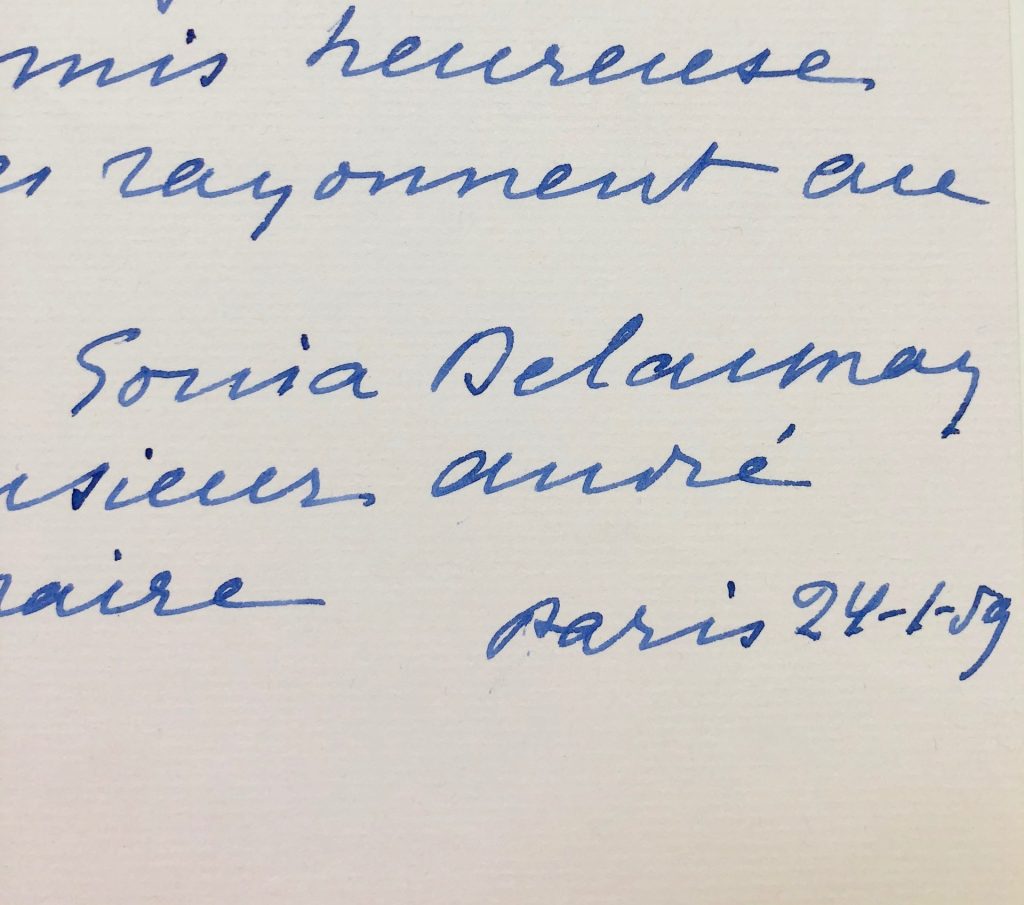 mis heureuse.
es rayonnent au
Sonia Delaunay
nsieur André
raire
Paris 24-1-59